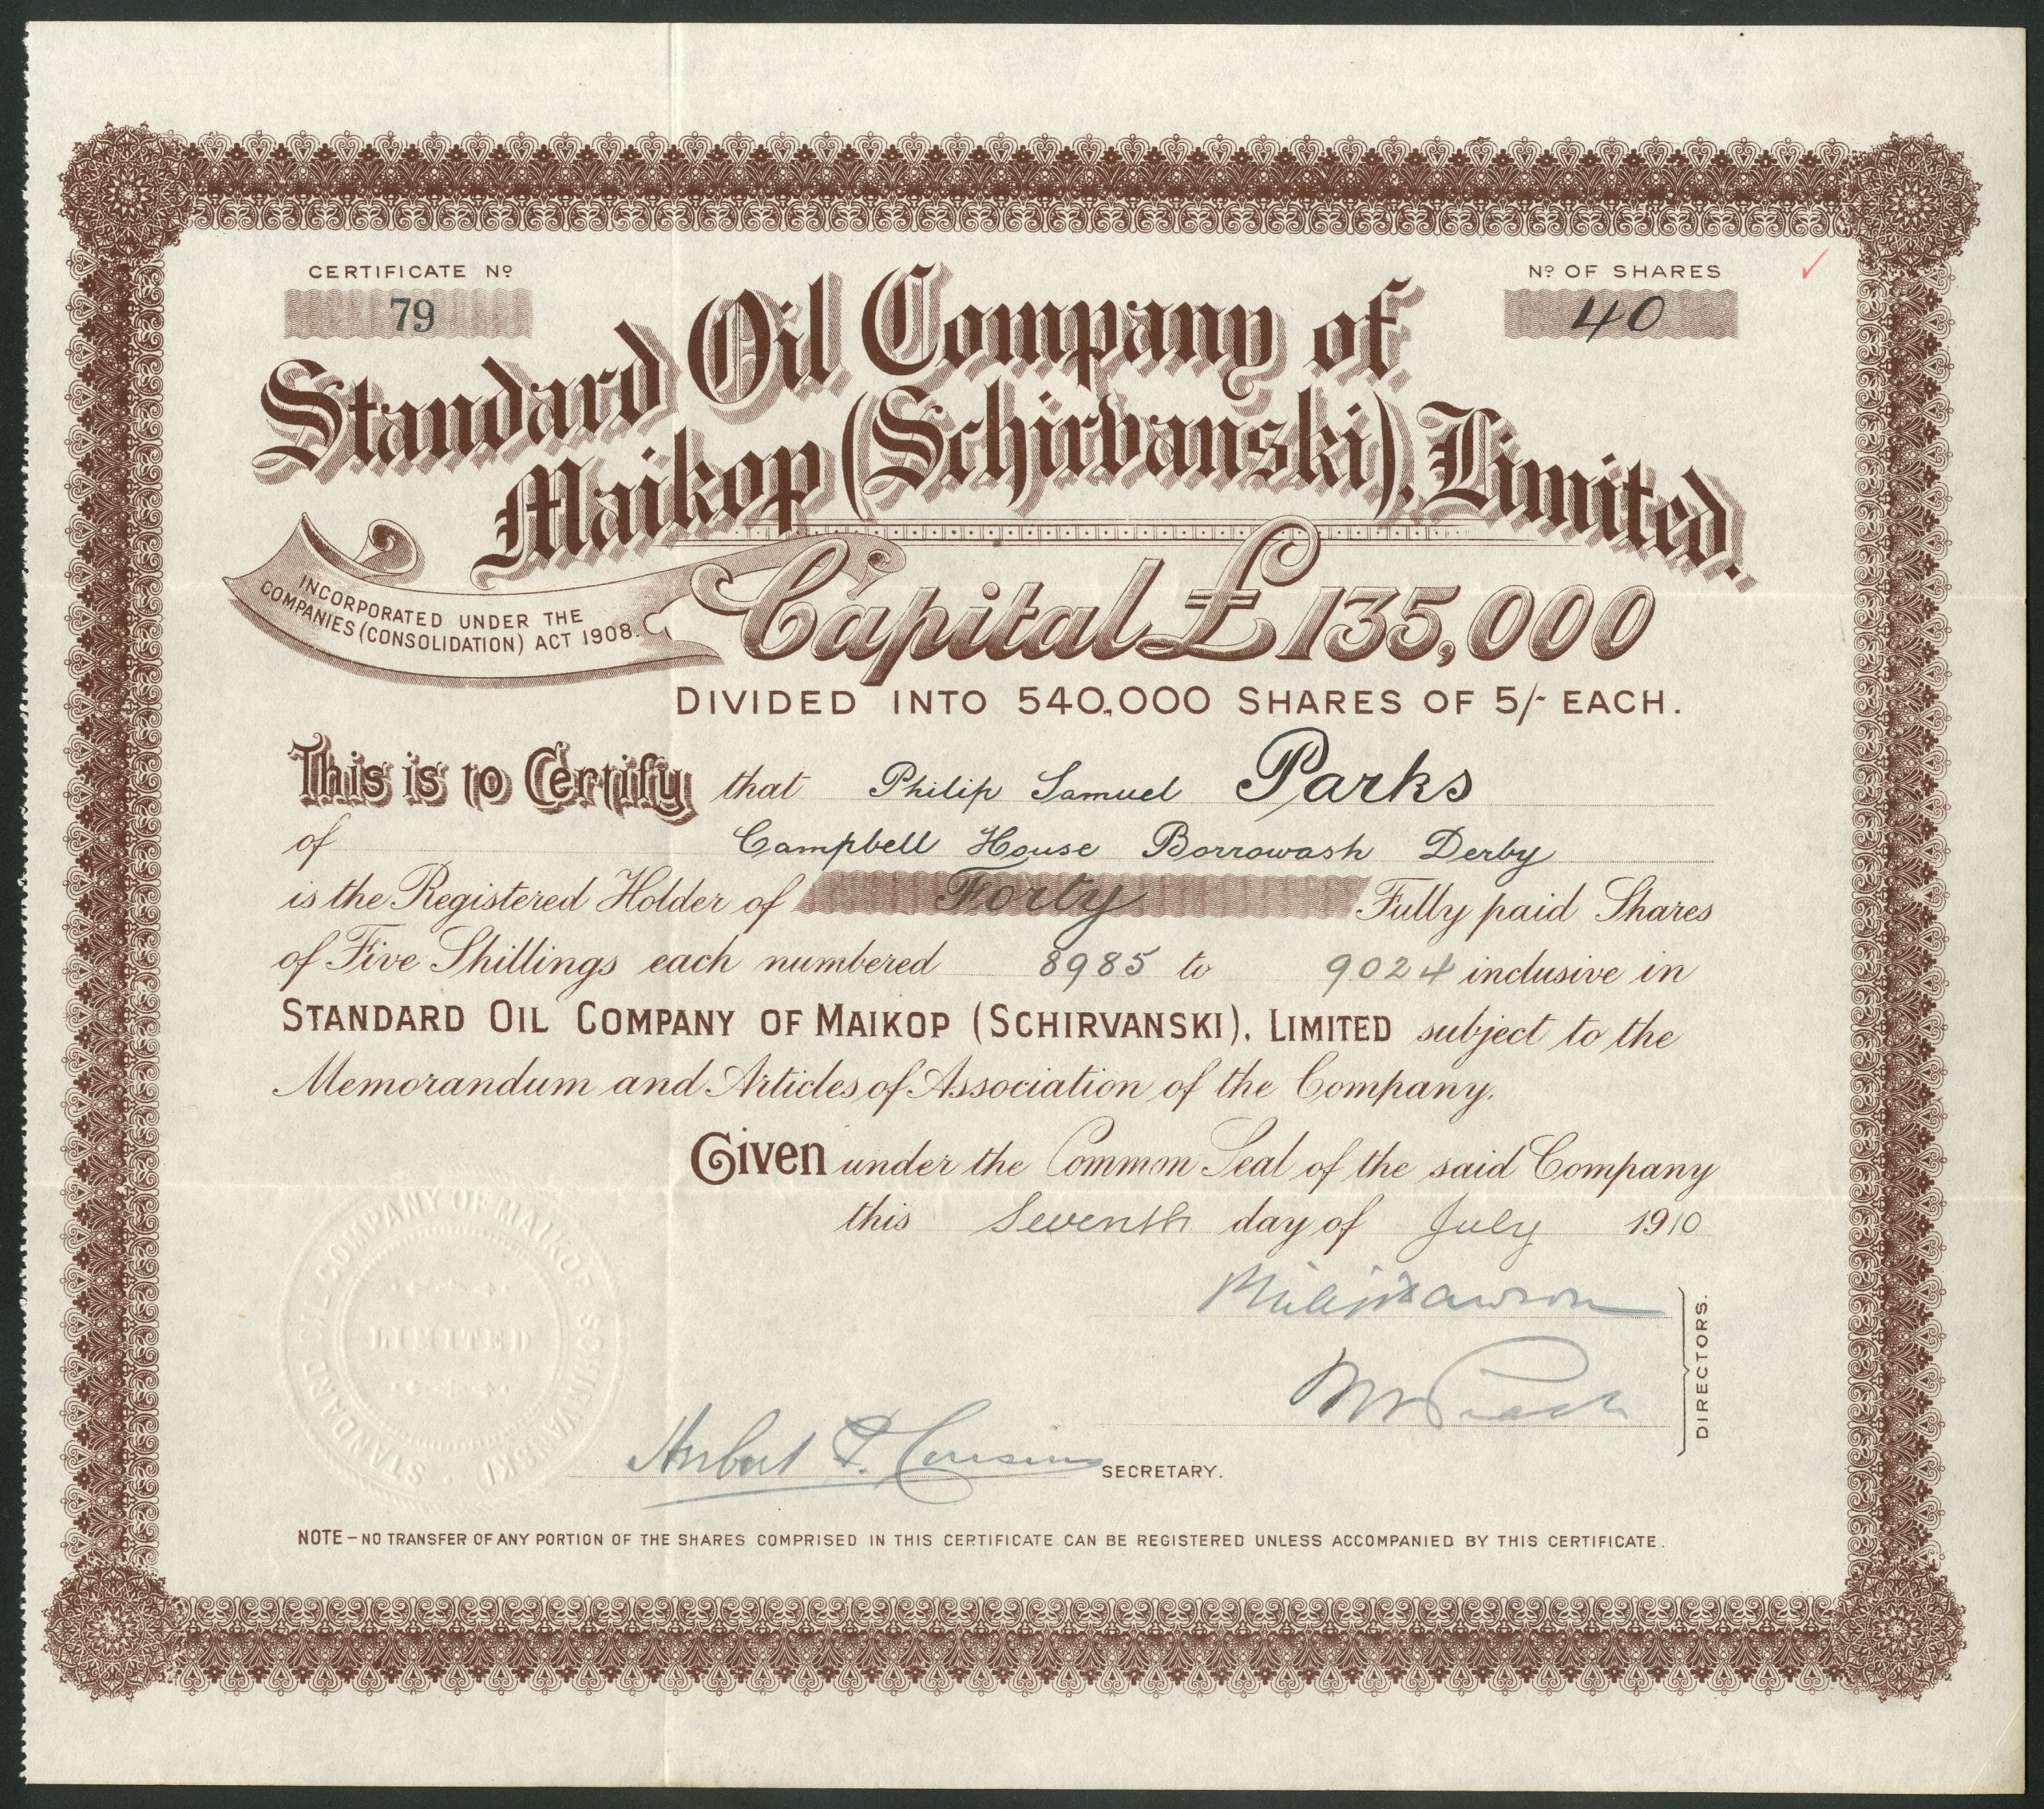 CERTIFICATE Nº
79
Nº OF SHARES
40
Standard Oil Company of
Maikop (Schirvanski), Limited.
INCORPORATED UNDER THE
COMPANIES (CONSOLIDATION) ACT 1908.
Capital £135,000
DIVIDED INTO 540,000 SHARES OF 5/- EACH.
This is to Certify that Philip Samuel Parks
of Campbell House Borrowash Derby
is the Registered Holder of Forty Fully paid Shares
of Five Shillings each numbered 8985 to 9024 inclusive in
STANDARD OIL COMPANY OF MAIKOP (SCHIRVANSKI), LIMITED subject to the
Memorandum and Articles of Association of the Company.
Given under the Common Seal of the said Company
this Seventh day of July 1910
Philip Dawson
DIRECTORS.
STANDARD OIL COMPANY OF MAIKOP SCHIRVANSKI
LIMITED
Herbert P. Cousins
SECRETARY.
NOTE – NO TRANSFER OF ANY PORTION OF THE SHARES COMPRISED IN THIS CERTIFICATE CAN BE REGISTERED UNLESS ACCOMPANIED BY THIS CERTIFICATE.